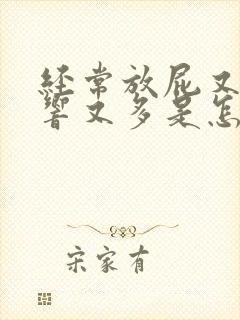 经常放屁又
响又多是怎
宋家有